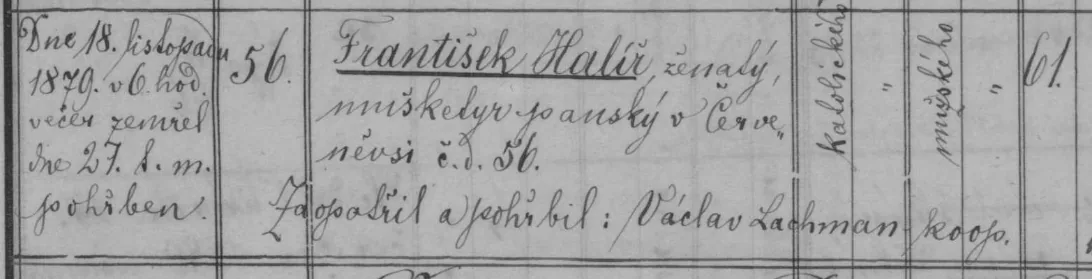 Dne 18. listopadu
1879. v 6. hod.
večer zemřel
dne 27. t. m.
pohřben.
56.
František Halíř, ženatý,
mušketyr panský v Červe„
névsi č. d. 56.
katolického
„
mužského
„
61.
Zaopatřil a pohřbil: Václav Lachman koop.